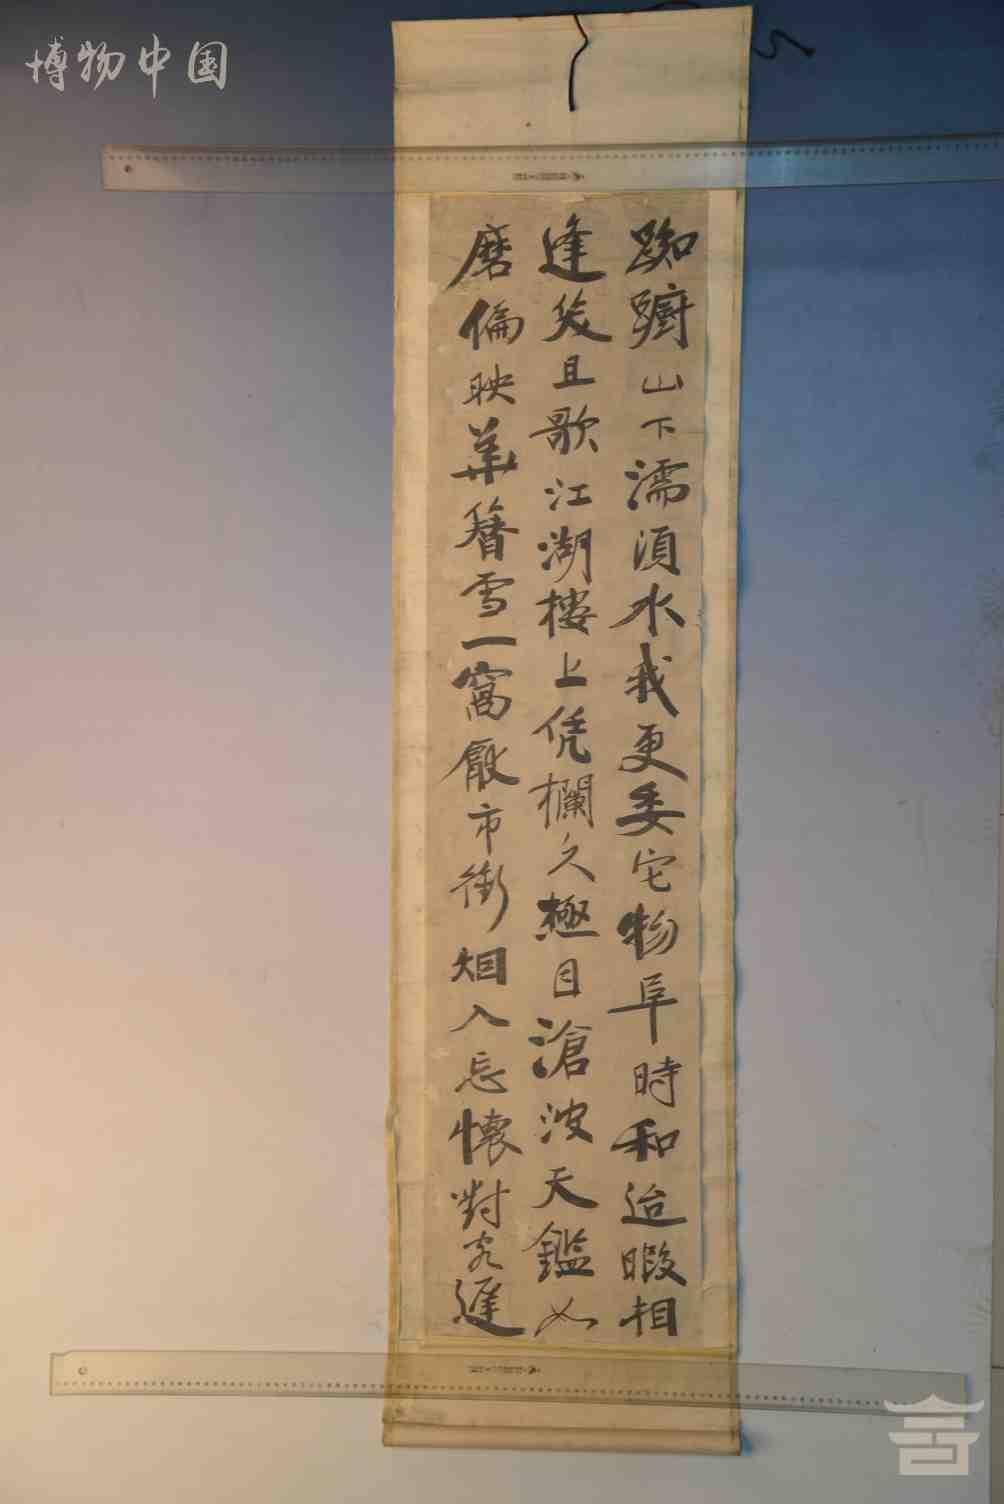 博物中国
踟躕山下濡須水我更委它物阜時和迨暇相
逢笑且歌江湖樓上凭欄久極目滄波天鑑如
磨偏映華簪雪一窩廠市衡烟入忘懷對客遲